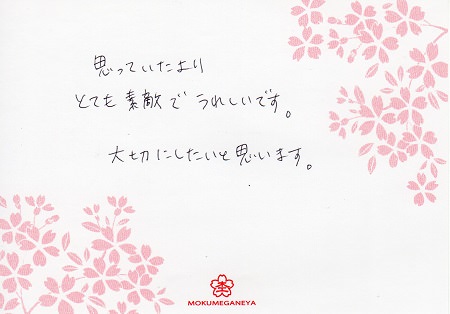 思っていたより
とても素敵でうれしいです。
大切にしたいと思います。
MOKUMEGANEYA